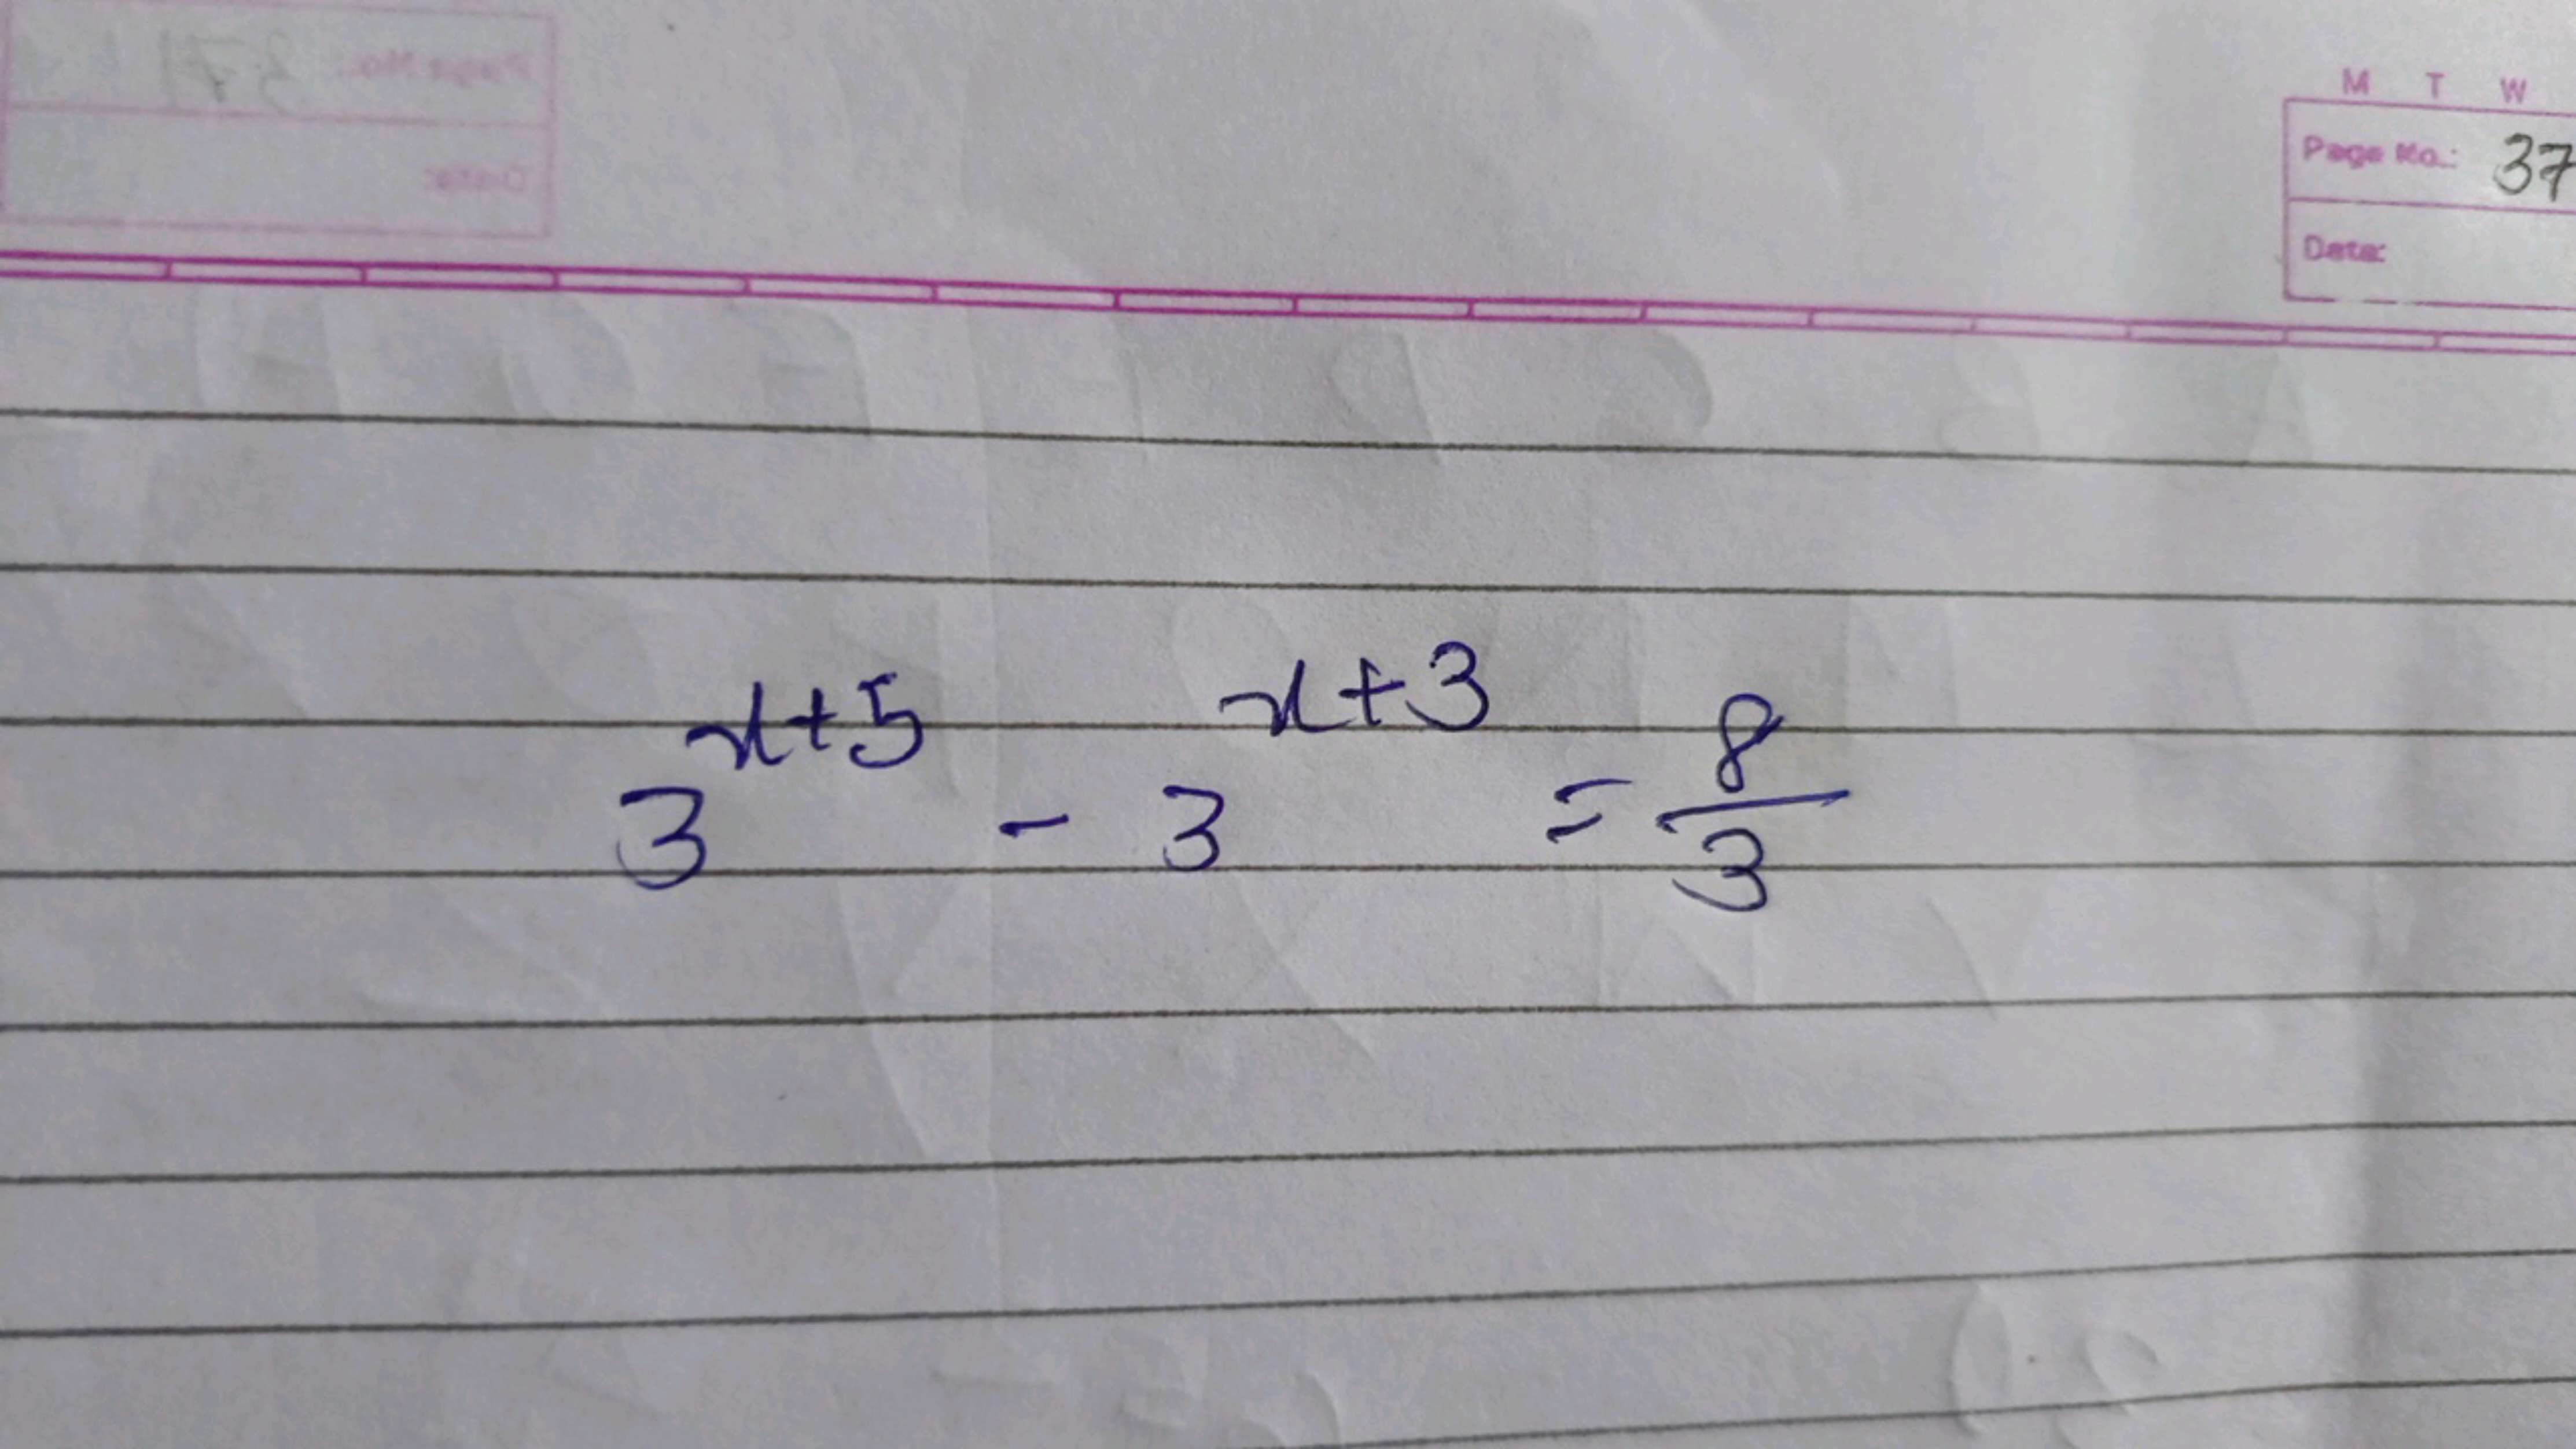 M T W
Page No.: 37
Date:
3^{x+5} - 3^{x+3} = \frac{8}{3}